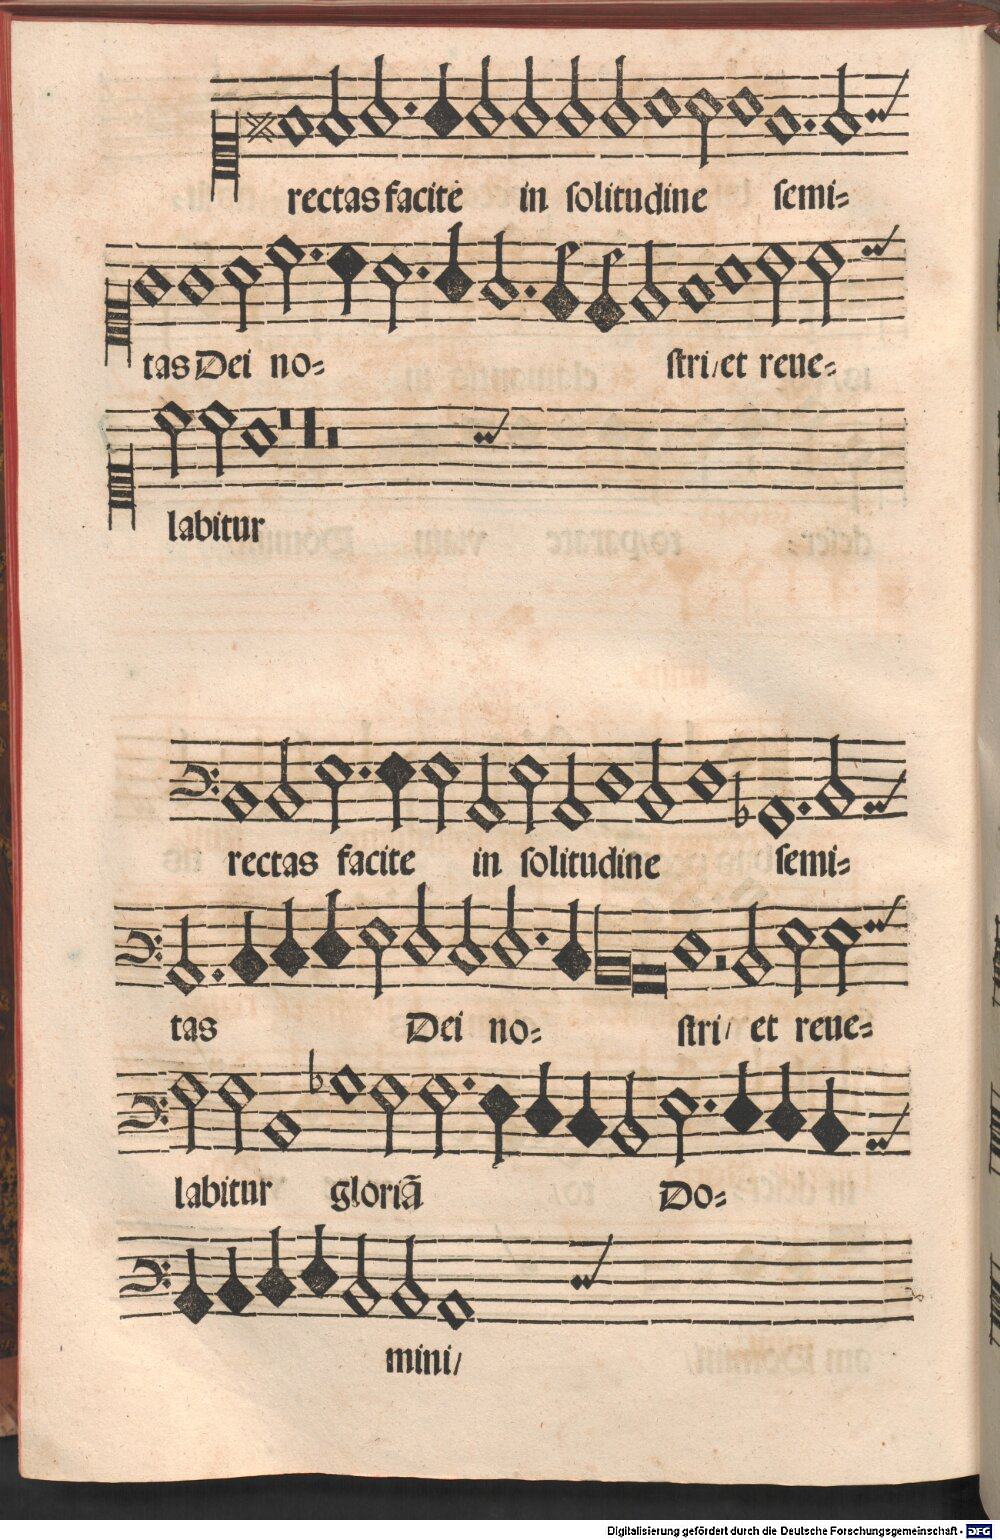 rectas facite in solitudine semi=
tas Dei no= stri/et reue=
labitur
rectas facite in solitudine semi=
tas Dei no= stri/ et reue=
labitur gloriã Do=
mini/
Digitalisierung gefördert durch die Deutsche Forschungsgemeinschaft - DFG